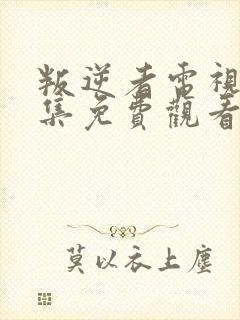 叛逆者電視
集免費觀看
莫以衣上塵